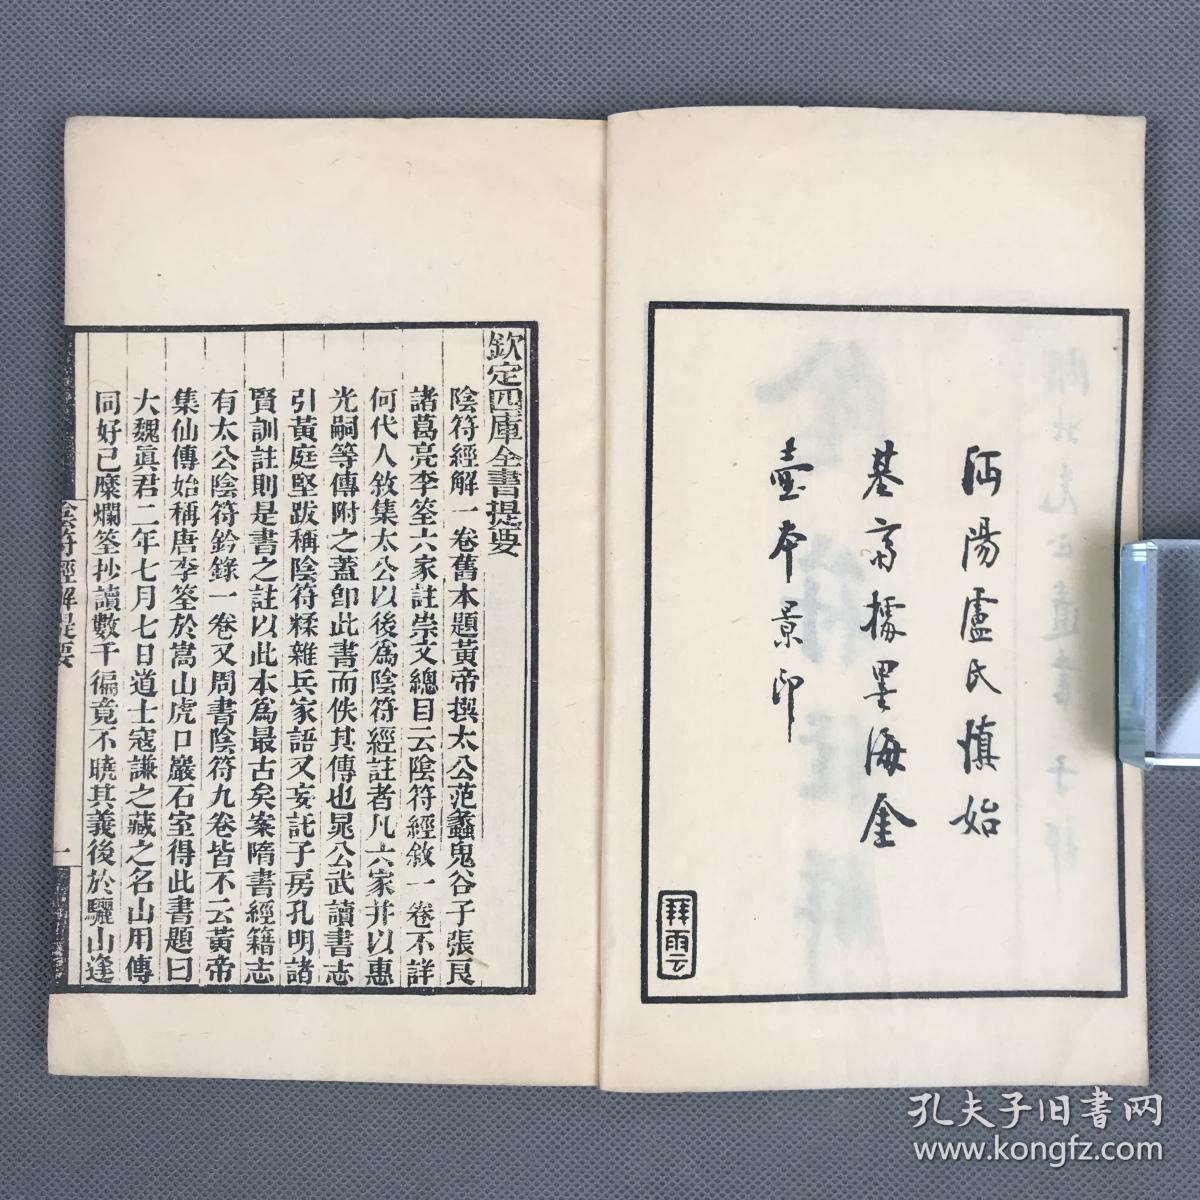 沔陽盧氏慎始
基齋據墨海金
壺本景印
欽定四庫全書提要
陰符經解一卷舊本題黃帝撰太公范蠡鬼谷子張良
諸葛亮李筌六家註崇文總目云陰符經敘一卷不詳
何代人敘集太公以後爲陰符經註者凡六家并以惠
光嗣等傳附之蓋卽此書而佚其傳也晁公武讀書志
引黃庭堅跋稱陰符糅雜兵家語又妄託子房孔明諸
賢訓註則是書之註以此本爲最古矣案隋書經籍志
有太公陰符鈐錄一卷又周書陰符九卷皆不云黃帝
集仙傳始稱唐李筌於嵩山虎口巖石室得此書題曰
大魏眞君二年七月七日道士寇謙之藏之名山用傳
同好已糜爛筌抄讀數千徧竟不曉其義後於驪山逢
陰符經解提要
一
孔夫子旧书网
www.kongfz.com